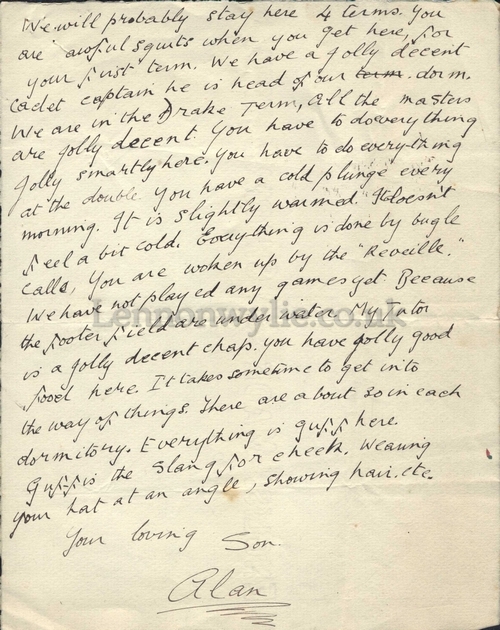 We will probably stay here 4 terms. You
are awful squits when you get here, for
your first term. We have a jolly decent
cadet captain he is head of our term. dorm.
We are in the Drake Term, All the masters
are jolly decent You have to do everything
jolly smartly here. You have to do everything
at the double You have a cold plunge every
morning. It is slightly warmed It doesn't
feel a bit cold. Everything is done by bugle
calls, You are woken up by the "Reveille."
We have not played any games yet Because
the footer field are under water My Tutor
is a jolly decent chap. you have jolly good
food here. It takes sometime to get into
the way of things. There are about 30 in each
dormitory. Everything is guff here.
Guff is the slang for cheek. Wearing
your hat at an angle, showing hair, etc.
Your loving Son.
Alan
Lennonwylie.co.uk